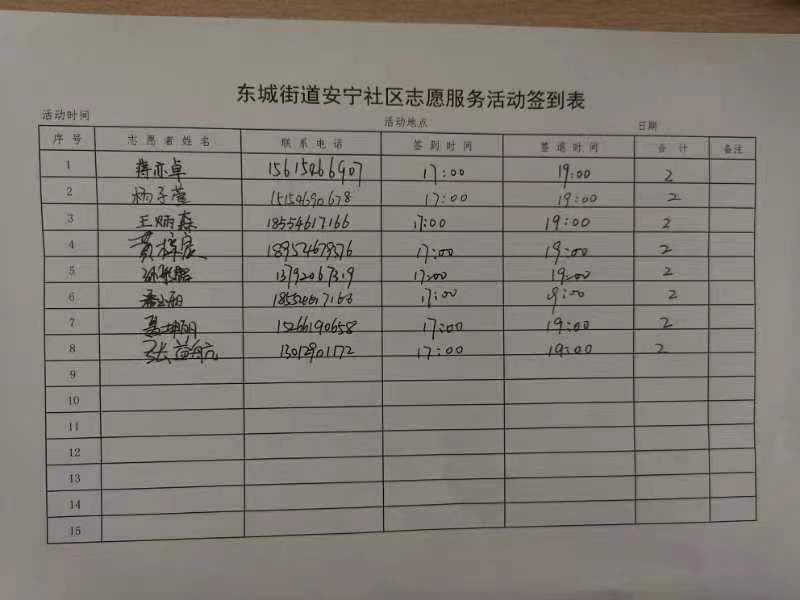 东城街道安宁社区志愿服务活动签到表
活动时间 活动地点: 日期
序号 志愿者姓名 联系电话 签到时间 签退时间 合计 备注
1 蒋亦卓 15615466907 17:00 19:00 2
2 杨子萱 15154690678 17:00 19:00 2
3 王炳森 18554617166 17:00 19:00 2
4 18954679576 17:00 19:00 2
5 13792067319 17:00 19:00 2
6 18554617166 17:00 9:00 2
7 15266190658 17:00 19:00 2
8 张益航 13012901172 17:00 19:00 2
9
10
11
12
13
14
15